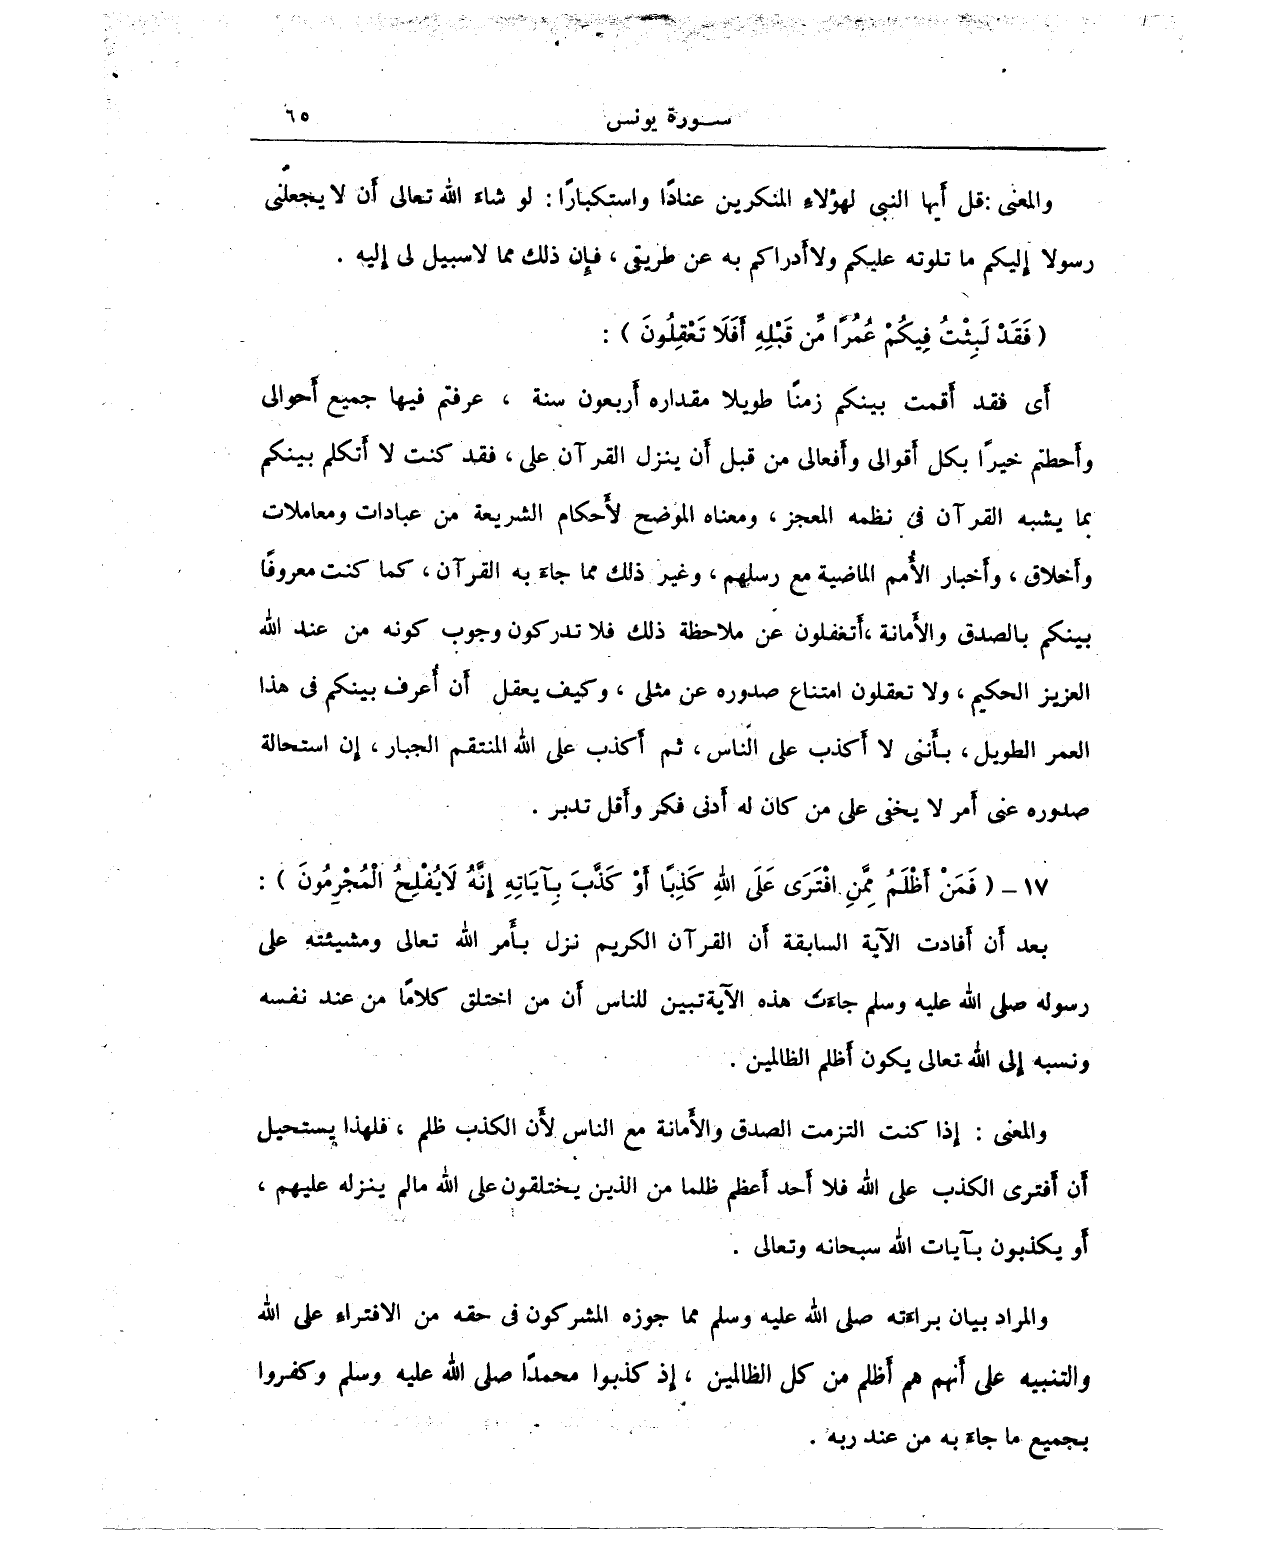 سورة يونس ٦٥
والمعنى : قل أيها النبي لهؤلاء المنكرين عنادًا واستكبارًا : لو شاء الله تعالى أن لا يجعلنى
رسولا إليكم ما تلوته عليكم ولا أدراكم به عن طريقى ، فإن ذلك مما لا سبيل لى إليه .
( فَقَدْ لَبِثْتُ فِيكُمْ عُمُرًا مِّن قَبْلِهِ أَفَلَا تَعْقِلُونَ ) :
أى فقد أقمت بينكم زمنًا طويلا مقداره أربعون سنة ، عرفتم فيها جميع أحوالى
وأحطتم خبرًا بكل أقوالى وأفعالى من قبل أن ينزل القرآن على ، فقد كنت لا أتكلم بينكم
بما يشبه القرآن فى نظمه المعجز ، ومعناه الموضح لأحكام الشريعة من عبادات ومعاملات
وأخلاق ، وأخبار الأُمم الماضية مع رسلهم ، وغير ذلك مما جاء به القرآن ، كما كنت معروفًا
بينكم بالصدق والأمانة ، أتغفلون عن ملاحظة ذلك فلا تدركون وجوب كونه من عند الله
العزيز الحكيم ، ولا تعقلون امتناع صدوره عن مثلى ، وكيف يعقل أن أُعرف بينكم فى هذا
العمر الطويل ، بأننى لا أكذب على الناس ، ثم أكذب على الله المنتقم الجبار ، إن استحالة
صدوره عنى أمر لا يخفى على من كان له أدنى فكر وأقل تدبر .
١٧ – ( فَمَنْ أَظْلَمُ مِمَّنِ افْتَرَى عَلَى اللهِ كَذِبًا أَوْ كَذَّبَ بِآيَاتِهِ إِنَّهُ لَايُفْلِحُ الْمُجْرِمُونَ ) :
بعد أن أفادت الآية السابقة أن القرآن الكريم نزل بأمر الله تعالى ومشيئته على
رسوله صلى الله عليه وسلم جاءت هذه الآية تبين للناس أن من اختلق كلامًا من عند نفسه
ونسبه إلى الله تعالى يكون أظلم الظالمين .
والمعنى : إذا كنت التزمت الصدق والأمانة مع الناس لأن الكذب ظلم ، فلهذا يستحيل
أن أفترى الكذب على الله فلا أحد أعظم ظلما من الذين يختلقون على الله مالم ينزله عليهم ،
أو يكذبون بآيات الله سبحانه وتعالى .
والمراد بيان براءته صلى الله عليه وسلم مما جوزه المشركون فى حقه من الافتراء على الله
والتنبيه على أنهم هم أظلم من كل الظالمين ، إذ كذبوا محمدًا صلى الله عليه وسلم وكفروا
بجميع ما جاء به من عند ربه .